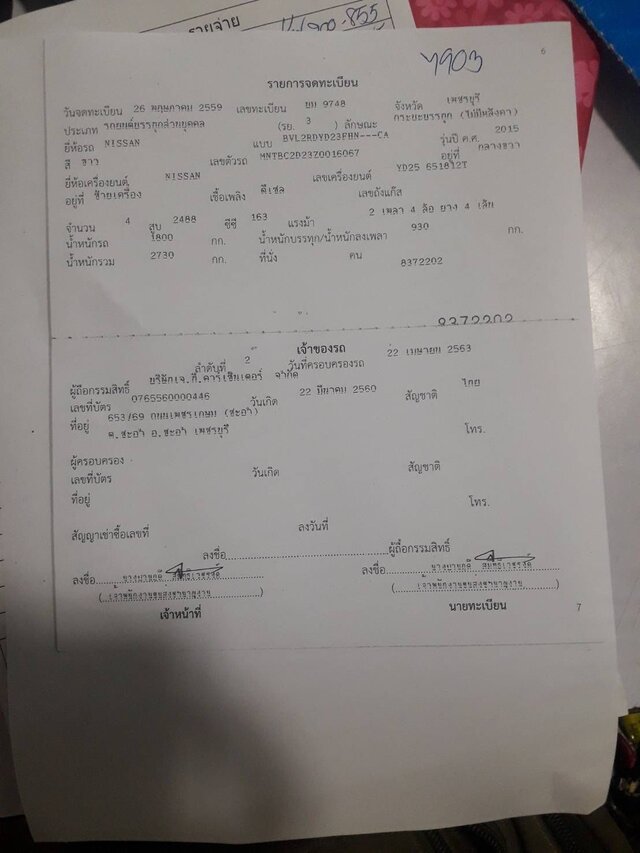 รายจ่าย
7903
6
รายการจดทะเบียน
วันจดทะเบียน 26 พฤษภาคม 2559 เลขทะเบียน ยม 9748 จังหวัด เพชรบุรี
ประเภท รถยนต์บรรทุกส่วนบุคคล (รย. 3 ) ลักษณะ กระบะบรรทุก (ไม่มีหลังคา)
ยี่ห้อรถ NISSAN แบบ BVL2RDYD23FHN---CA รุ่นปี ค.ศ. 2015
สี ขาว เลขตัวรถ MNTBC2D23Z0016067 อยู่ที่ กลางขวา
ยี่ห้อเครื่องยนต์ NISSAN เลขเครื่องยนต์ YD25 651812T
อยู่ที่ ซ้ายเครื่อง เชื้อเพลิง ดีเซล เลขถังแก๊ส
จำนวน 4 สูบ 2488 ซีซี 163 แรงม้า 2 เพลา 4 ล้อ ยาง 4 เส้น
น้ำหนักรถ 1800 กก. น้ำหนักบรรทุก/น้ำหนักลงเพลา 930 กก.
น้ำหนักรวม 2730 กก. ที่นั่ง คน 8372202
8372202
เจ้าของรถ
ลำดับที่ 2 วันที่ครอบครองรถ 22 เมษายน 2563
ผู้ถือกรรมสิทธิ์ บริษัทเจ.ที.คาร์เซ็นเตอร์ จำกัด
เลขที่บัตร 0765560000446 วันเกิด 22 มีนาคม 2560 สัญชาติ ไทย
ที่อยู่ 653/69 ถนนเพชรเกษม (ชะอำ)
ต.ชะอำ อ.ชะอำ เพชรบุรี โทร.
ผู้ครอบครอง
เลขที่บัตร วันเกิด สัญชาติ
ที่อยู่ โทร.
สัญญาเช่าซื้อเลขที่ ลงวันที่
ลงชื่อ ผู้ถือกรรมสิทธิ์
ลงชื่อ ลงชื่อ
(เจ้าพนักงานขนส่งชำนาญงาน) (เจ้าพนักงานขนส่งชำนาญงาน)
เจ้าหน้าที่ นายทะเบียน 7